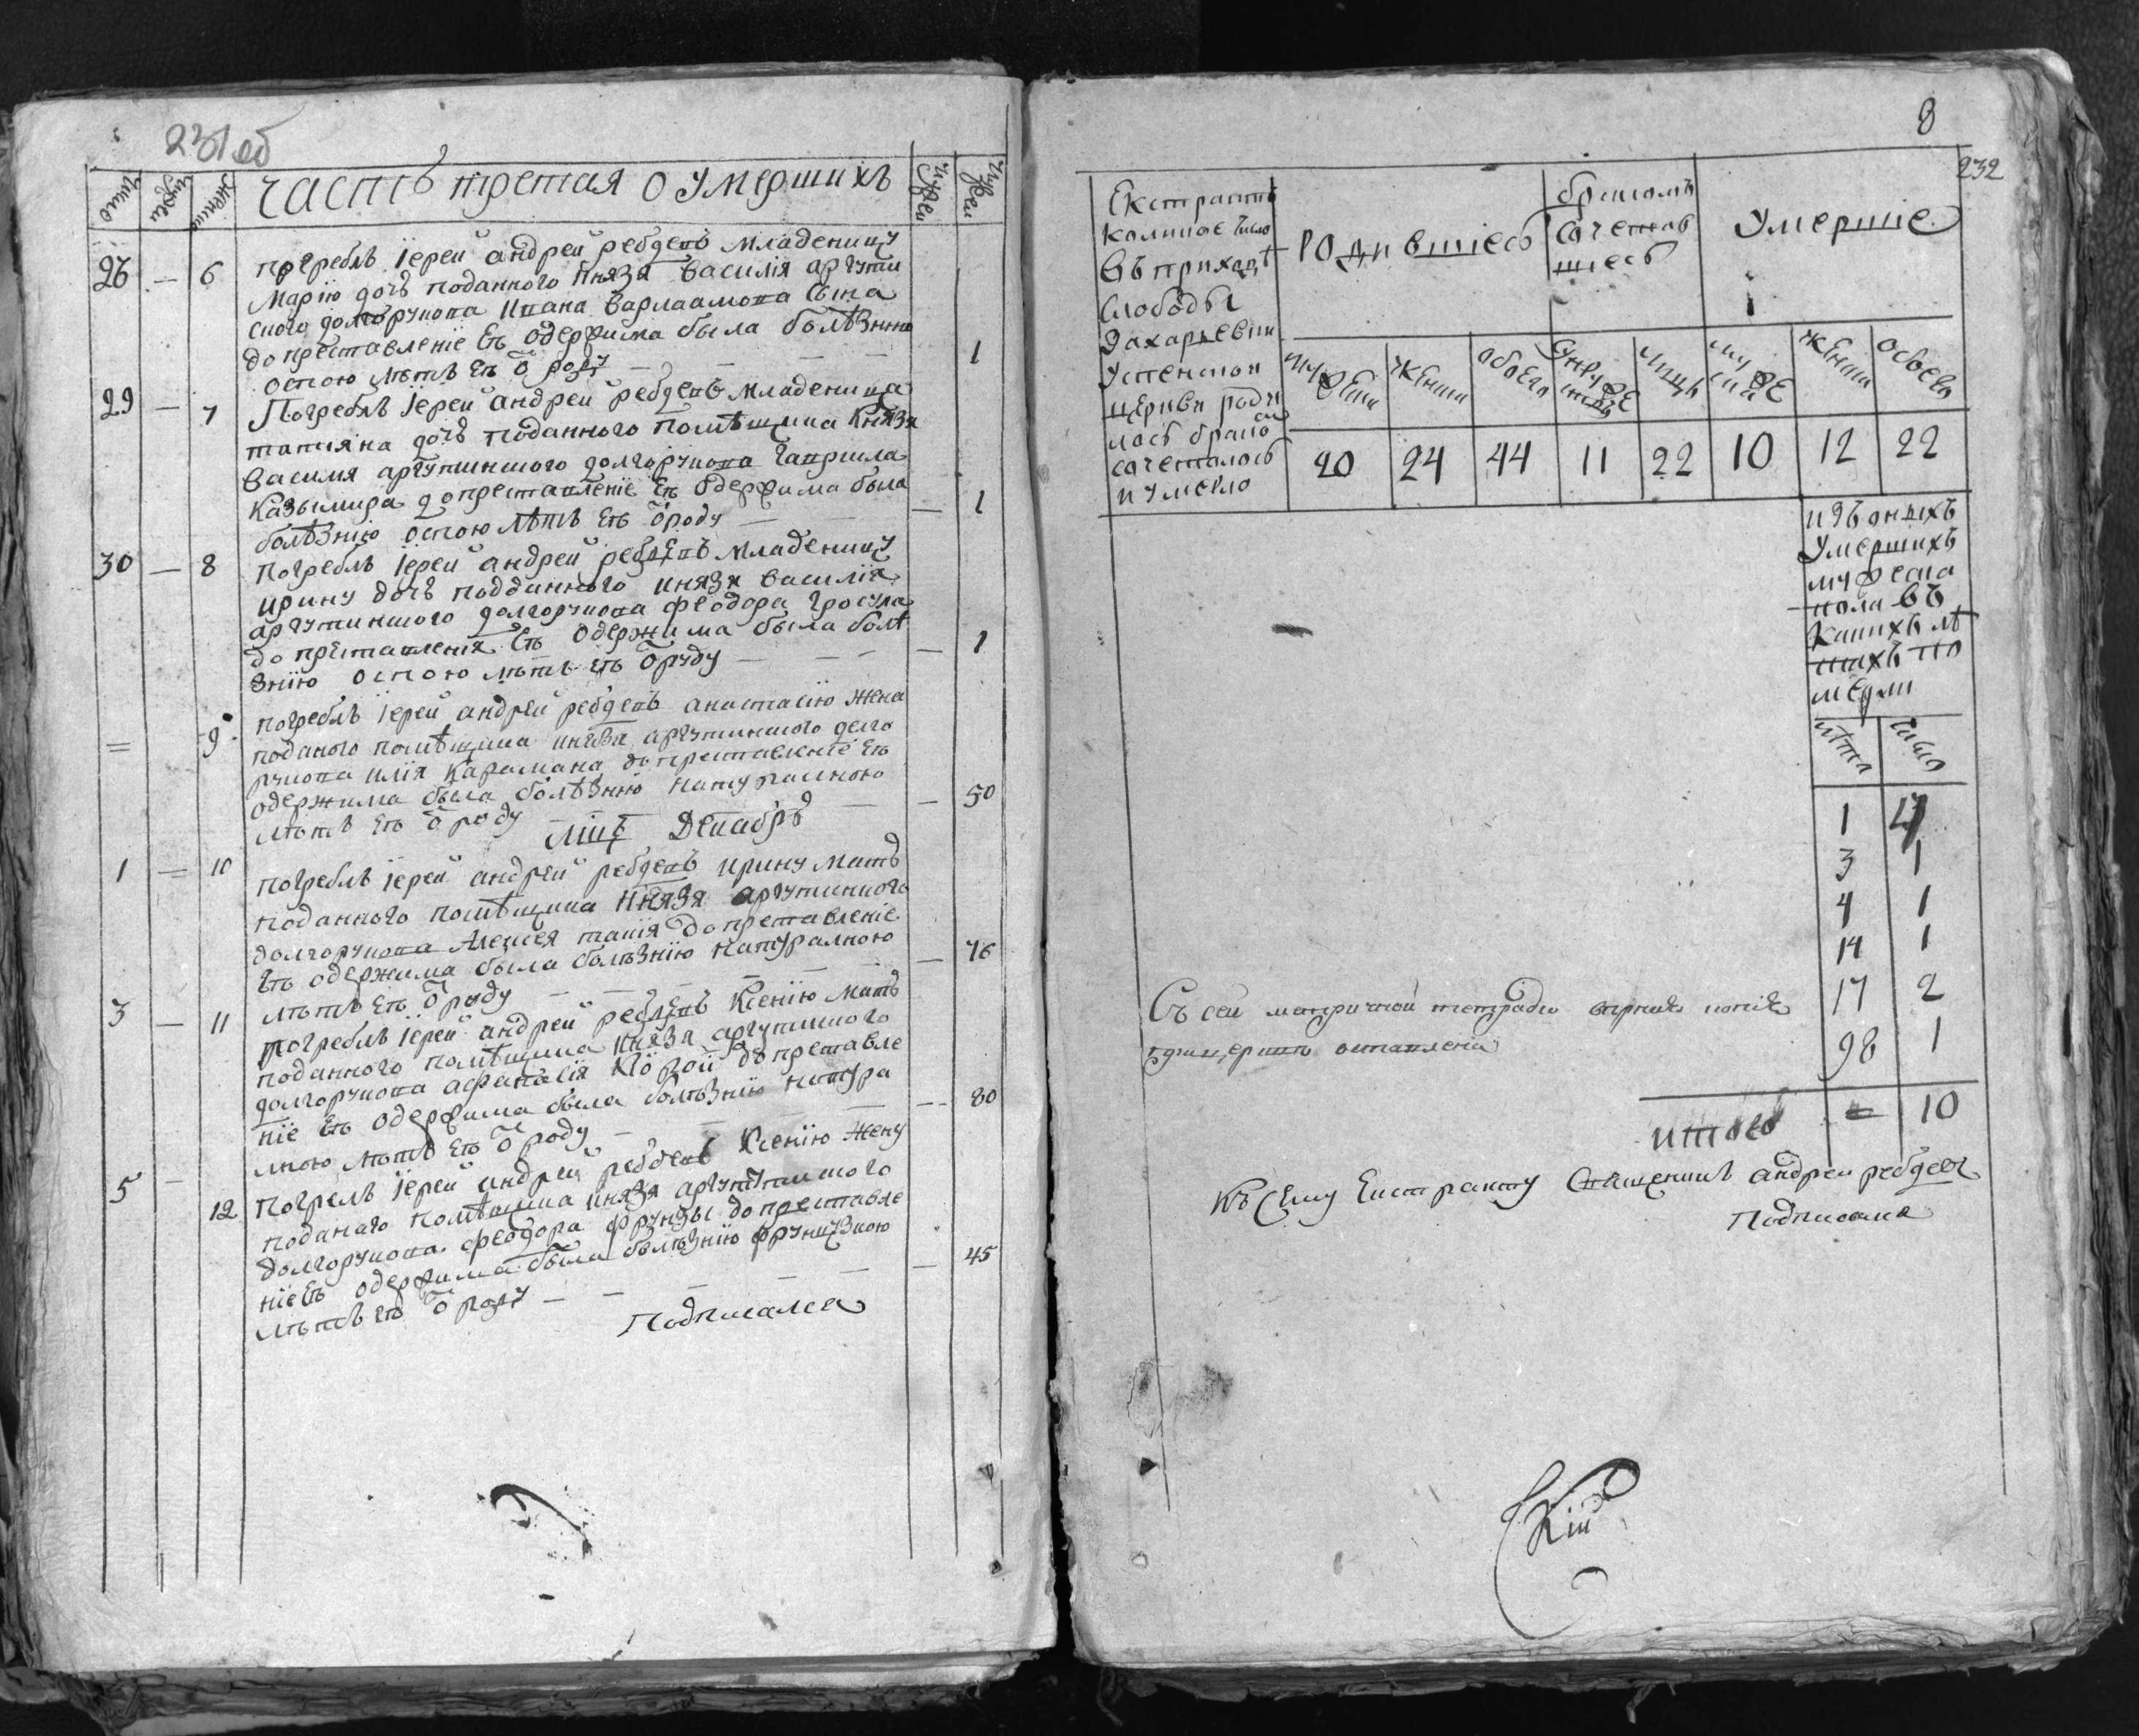 231 об
Число
Мужеи
Женши
Часть третая о умершихъ
Мужеи
26 — 6 погребль іереи андреи ребдевъ младеницу
Марію дочъ поданного князя василія аргути
ского долгорукова ивана варлаамова сына
до преставленіе Евъ одержима была болѣзнню
оспою лѣтъ Евъ Ѿ роду — — — 1
29 — 7 Погребль іереи андреи ребдевъ младеница
татияна дочъ поданного помѣщика князя
василия аргутинского долгорукова гаврила
казымира допреставление Евъ одержима была
болѣзнію оспою лѣтъ Евъ Ѿроду — — 1
30 — 8 погребль іереи андреи ребдевъ младеницу
ирину дочъ подданного князя василія
аргутинского долгорукова феодора гросула
до преставления Евъ одержима была болѣ
знію оспою лѣтъ евъ Ѿроду — — — — 1
= 9 погребль іереи андреи ребдевъ анастасію жена
поданого помѣщика князя аргутинского долго
рукова илія карамана до преставленіе Евъ
одержима была болѣзнію натуралною
лѣтъ Евъ Ѿ роду — — 50
мцъ Декабръ
1 = 10 погребль іереи андреи ребдевъ ирину матъ
поданного помѣщика князя аргутинского
долгорукова Алексея до преставленіе
Евъ одержима была болѣзнію натуралною
лѣтъ Евъ Ѿ роду — — — — 76
3 — 11 погребль іереи андреи ребдевъ Ксенію матъ
поданного помѣщика князя аргутинского
долгорукова афанасія до преставле
ніе Евъ одержима была болѣзнію натура
лною лѣтъ Евъ Ѿ роду — — — 80
5 — 12 погрелъ іереи андреи ребдевъ Ксенію жену
поданаго помѣщика князя аргутинского
долгорукова феодора фрунзы до преставле
ніе Евъ одержима была болѣзнію
лѣтъ Евъ Ѿ роду — — — — — 45
Подписался
8
232
Екстрактъ
коликое число
въ приходѣ
слободы
Захарьевки
успенскои
церкви роди
лось брако
сочеталось
и умерло
Родившіесь
бракомъ
сочетав
шиесь
Умершіе
женши
обоего
лицъ
женши
обоего
20 24 44 11 22 10 12 22
изъ онихъ
умершихъ
мужеска
пола въ
какихъ лѣ
тахъ по
мерли
лѣта число
1 4
3 1
4 1
14 1
17 2
98 1
итого = 10
Съ сеи метричной тетради вѣрная копія
оставлена
Къ сему Екстракту Священикъ андреи ребдевъ
Подписался